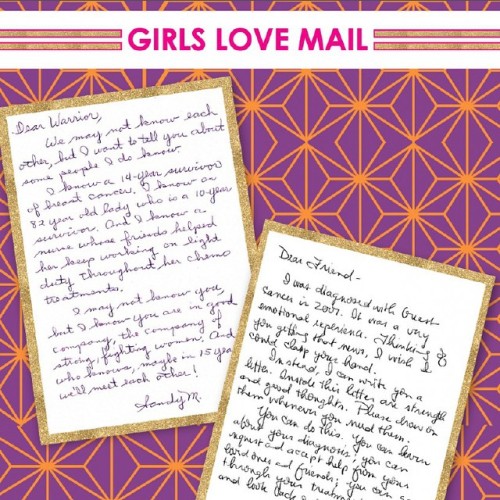 GIRLS LOVE MAIL
Dear Warrior,
We may not know each
other, but I want to tell you about
some people I do know.
I know a 14-year survivor
of breast cancer. I know an
82 year old lady who is a 10-year
survivor. And I know a
nurse whose friends helped
her keep working on light
duty throughout her chemo
treatments.
I may not know you,
but I know you are in good
company, the company of
strong, fighting women. And
who knows, maybe in 15 years
we'll meet each other!
Sandy M.
Dear Friend-
I was diagnosed with breast
cancer in 2007. It was a very
emotional experience. Thinking of
you getting that news, I wish I
could clasp your hand.
Instead, I can write you a
letter. Inside this letter are strength
and good thoughts. Please draw on
them whenever you need them.
You can do this. You can
about your diagnosis; you can
request and accept help from your
loved ones and friends; you can
through your treatment
and look back